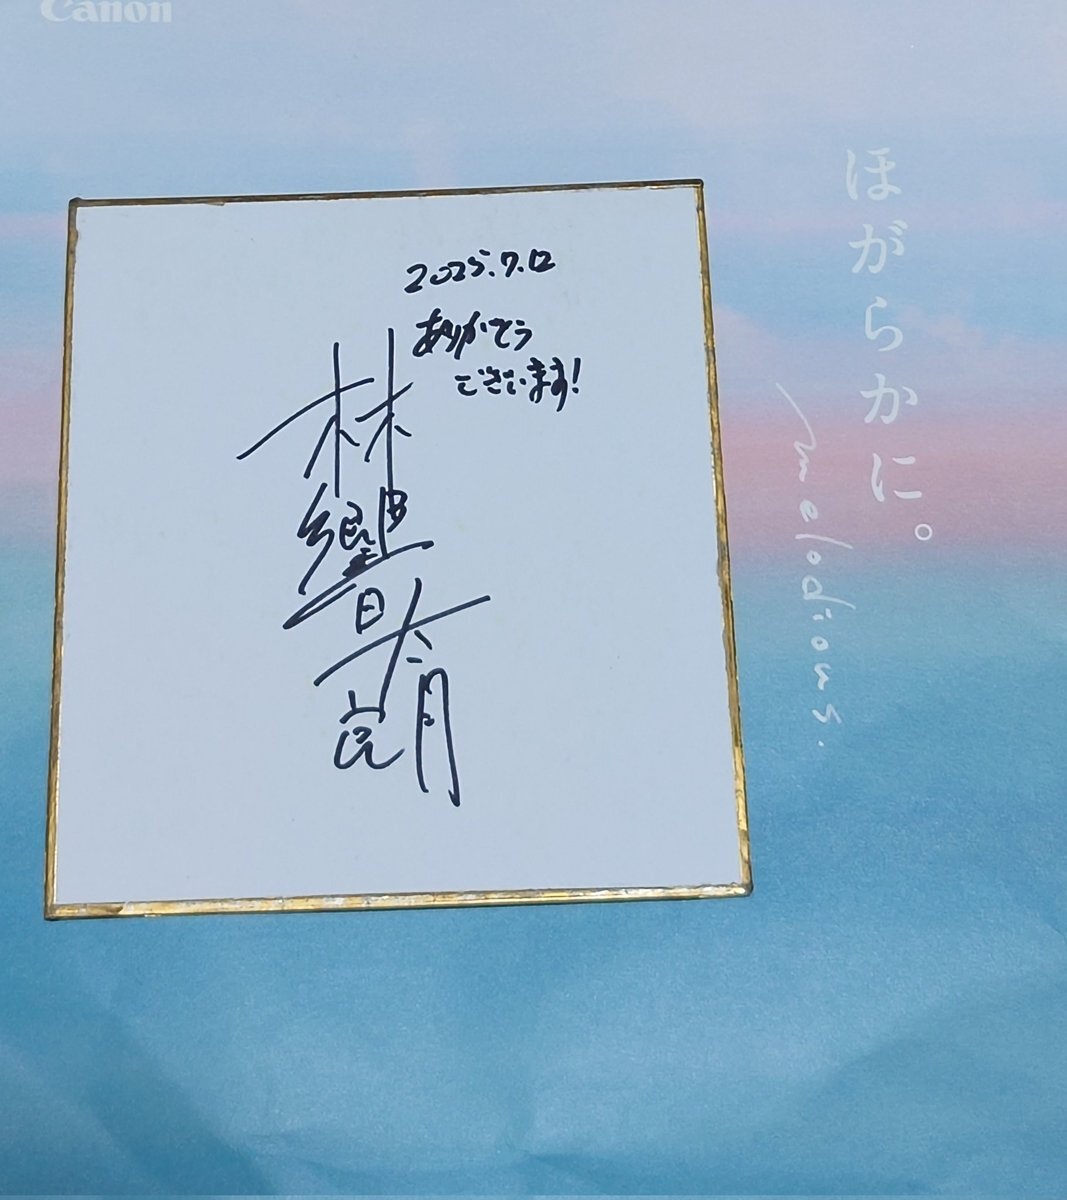 Canon
2025.7.12
ありがとう
ございます!
林響太朗
ほがらかに。
melodious.